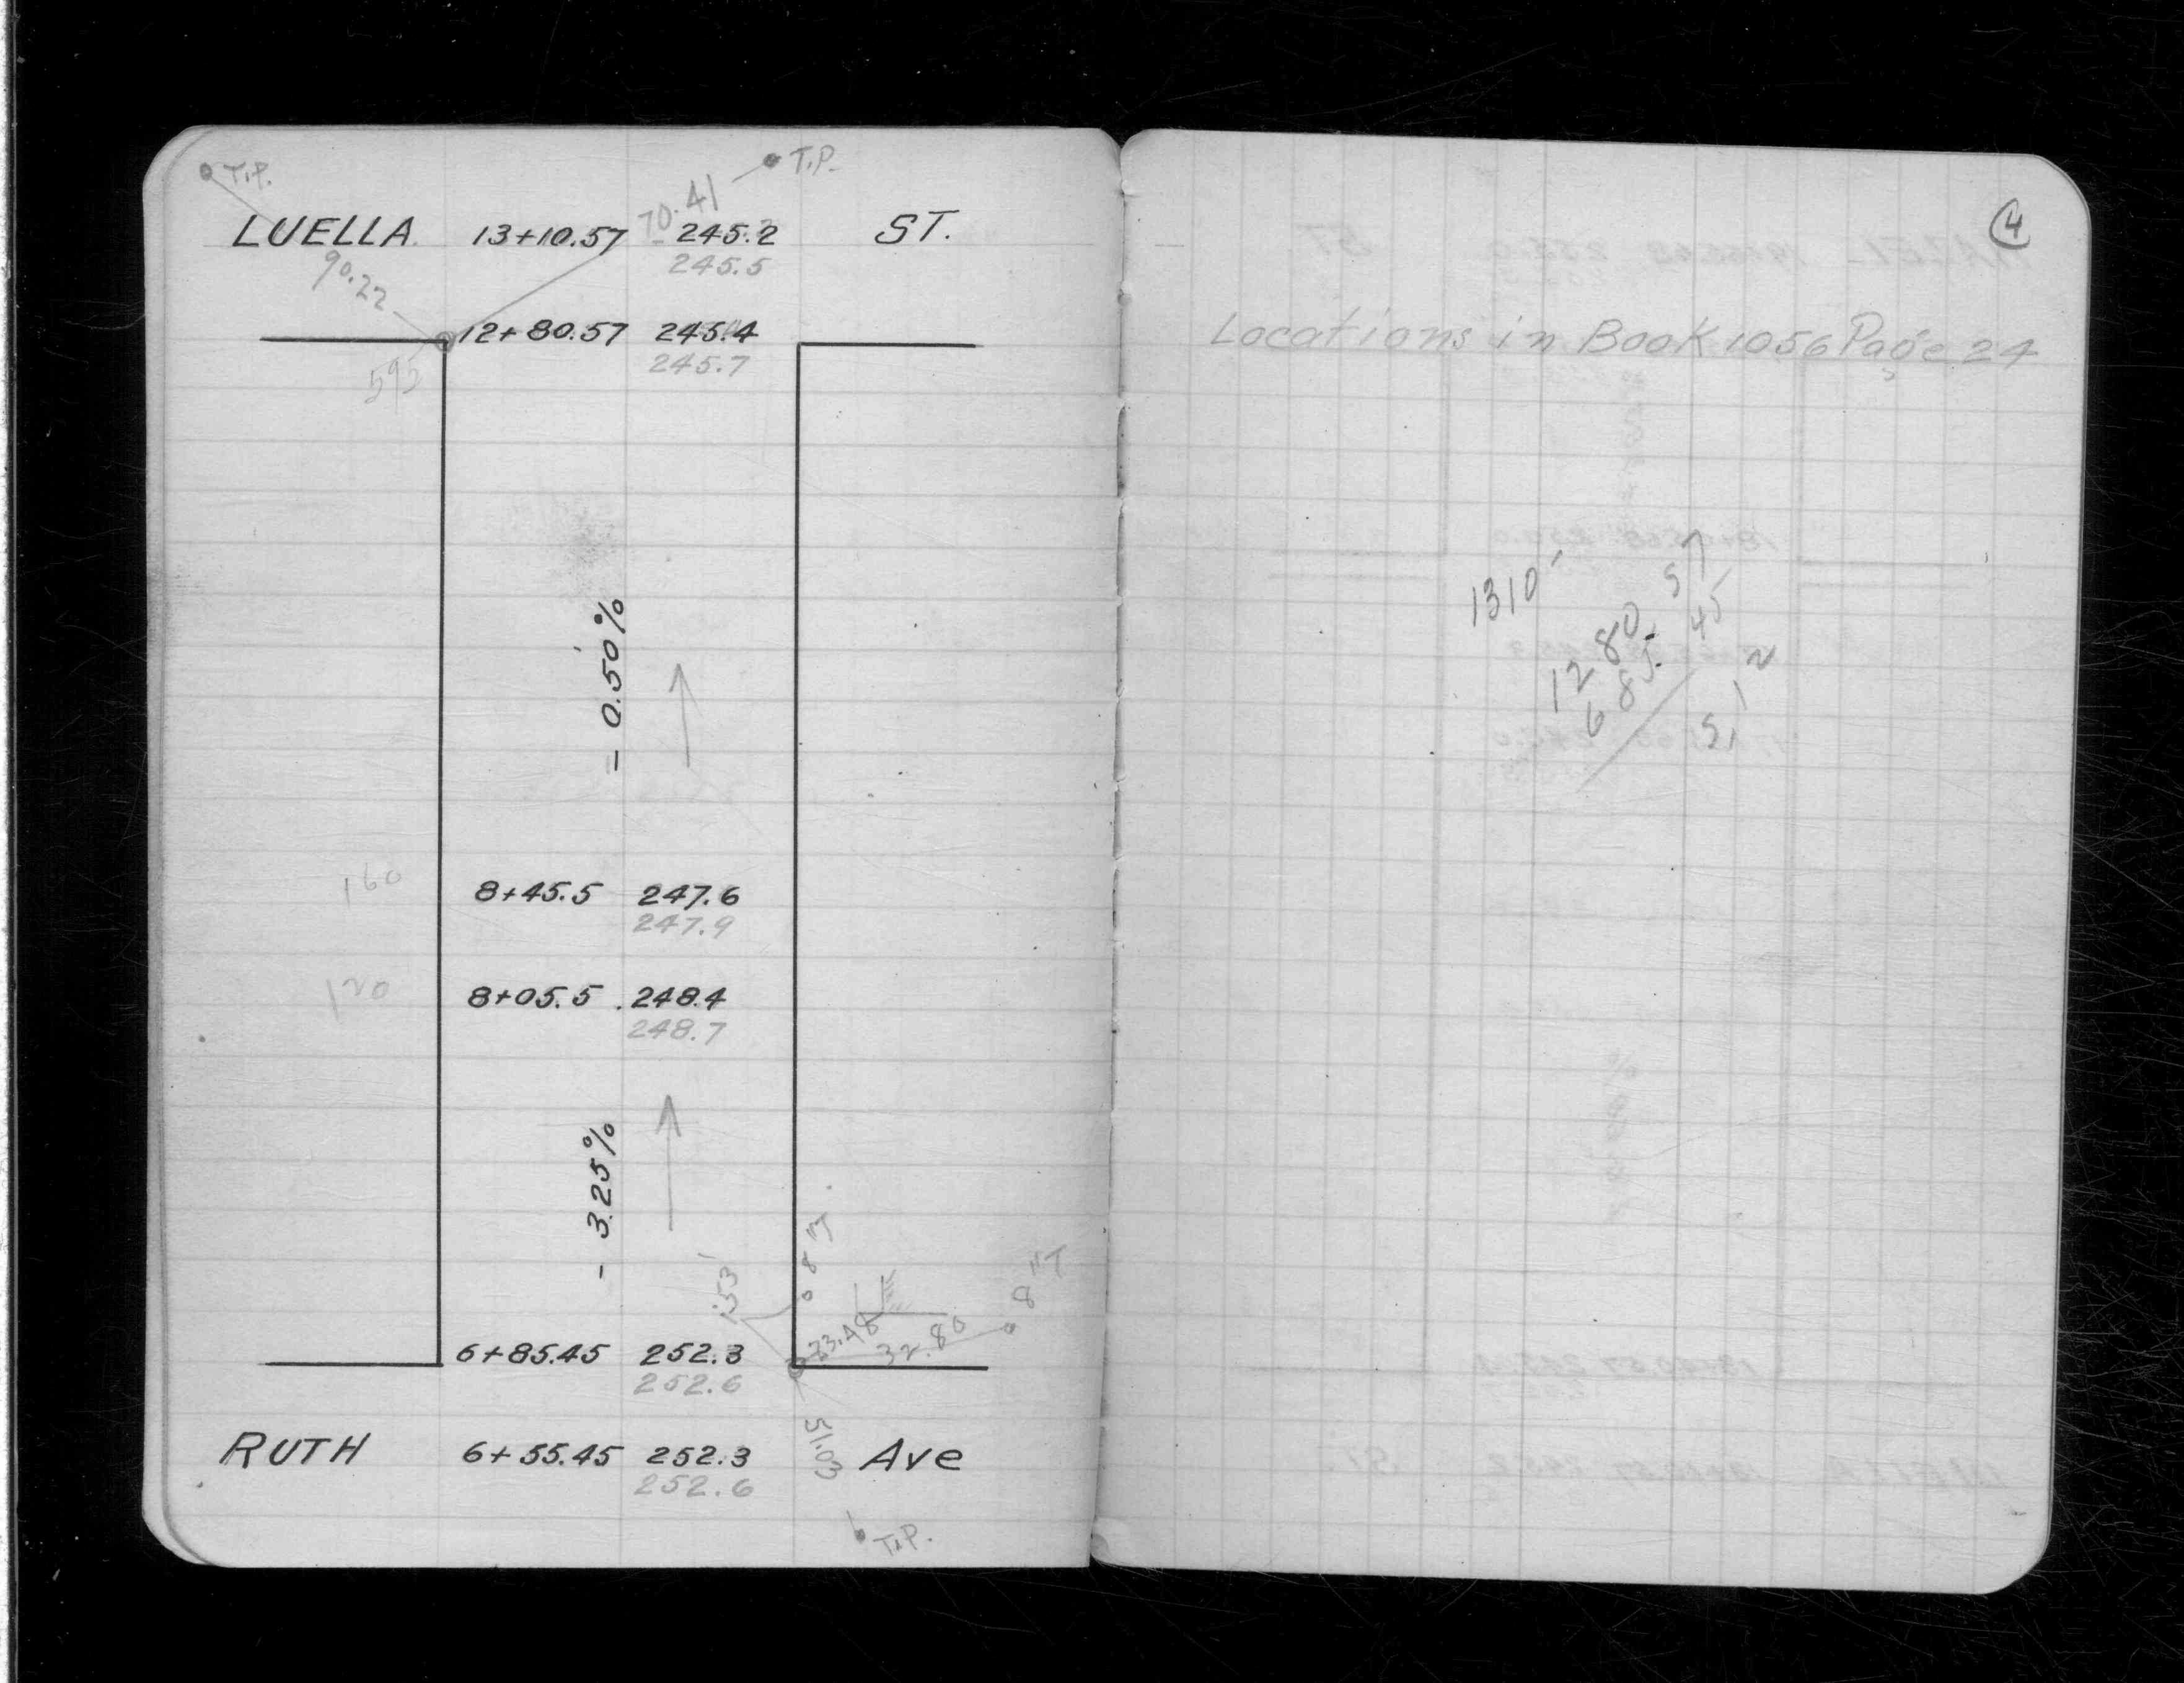 T.P.
T.P.
70.41
LUELLA 13+10.57 245.2 ST.
245.5
90.22
12+80.57 245.4
245.7
595
- 0.50%
160
8+45.5 247.6
247.9
120
8+05.5 248.4
248.7
- 3.25%
8"T
8"T
.53
23.48
32.80
6+85.45 252.3
252.6
51.03
RUTH 6+55.45 252.3 Ave
252.6
T.P.
4
Locations in Book 1056 Page 24
1310
1280.57
685.45
5 12